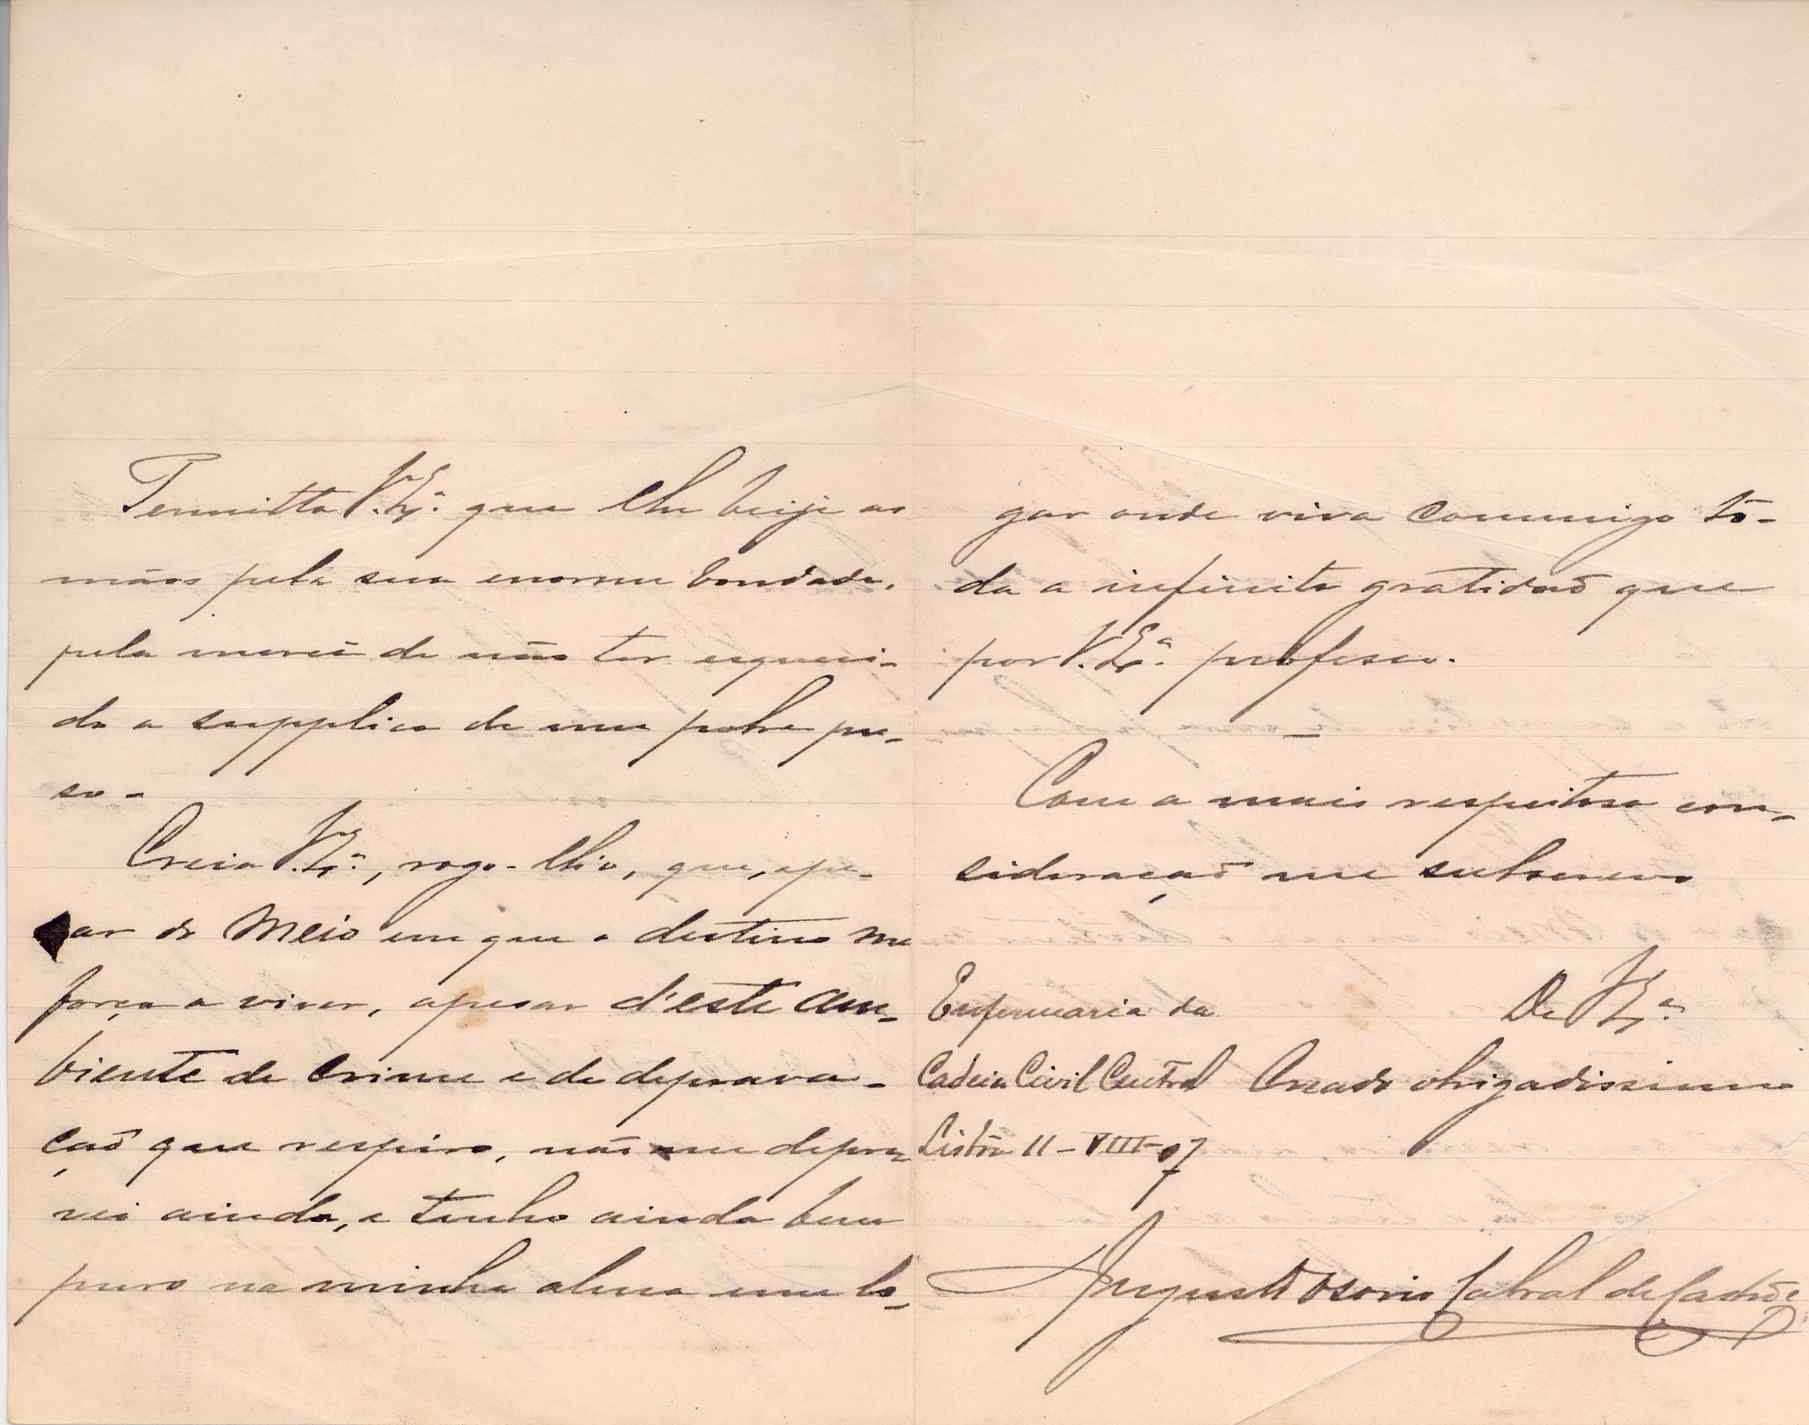 Permitta V. Ex.ª que lhe beije as
mãos pela sua enorme bondade,
pela mercê de não ter esqueci-
do a supplica de um pobre pre-
so.
Creia V. Ex.ª, rogo-lh'o, que, ape-
sar do meio em que o destino me
força a viver, apesar d'este am-
biente de crime e de deprava-
ção que respiro, não me depra-
vei ainda, e tenho ainda bem
puro na minha alma um lo-
gar onde viva commigo to-
da a infinita gratidaõ que
por V. Ex.ª professo.
—
Com a mais respeitosa con-
sideraçaõ me subscrevo
De V. Ex.ª
Creado obrigadissimo
Enfermaria da
Cadeia Civil Central
Lisbôa 11-VIII-07
Augusto Osorio Cabral de Castro